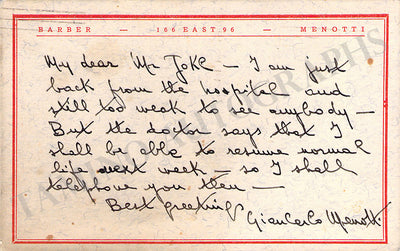 BARBER — 166 EAST 96 — MENOTTI
My dear Mr Jokl — I am just
back from the hospital and
still too weak to see anybody —
But the doctor says that I
shall be able to resume normal
life next week — so I shall
telephone you then —
Best greetings
GianCarlo Menotti
TAMINO AUTOGRAPHS